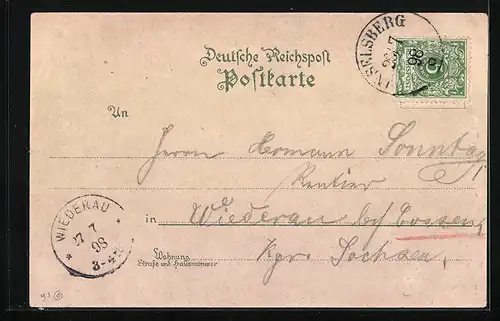 INSELSBERG
Deutsche Reichspost
Postkarte
An
Herrn Hermann Sonntag,
Rentier
in Wiederau bei Cossen,
Kgr. Sachsen,
Wohnung
Straße und Hausnummer
WIEDERAU
7 98
3-4